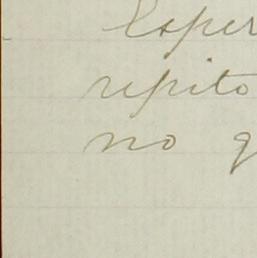 Esper
repito
no q